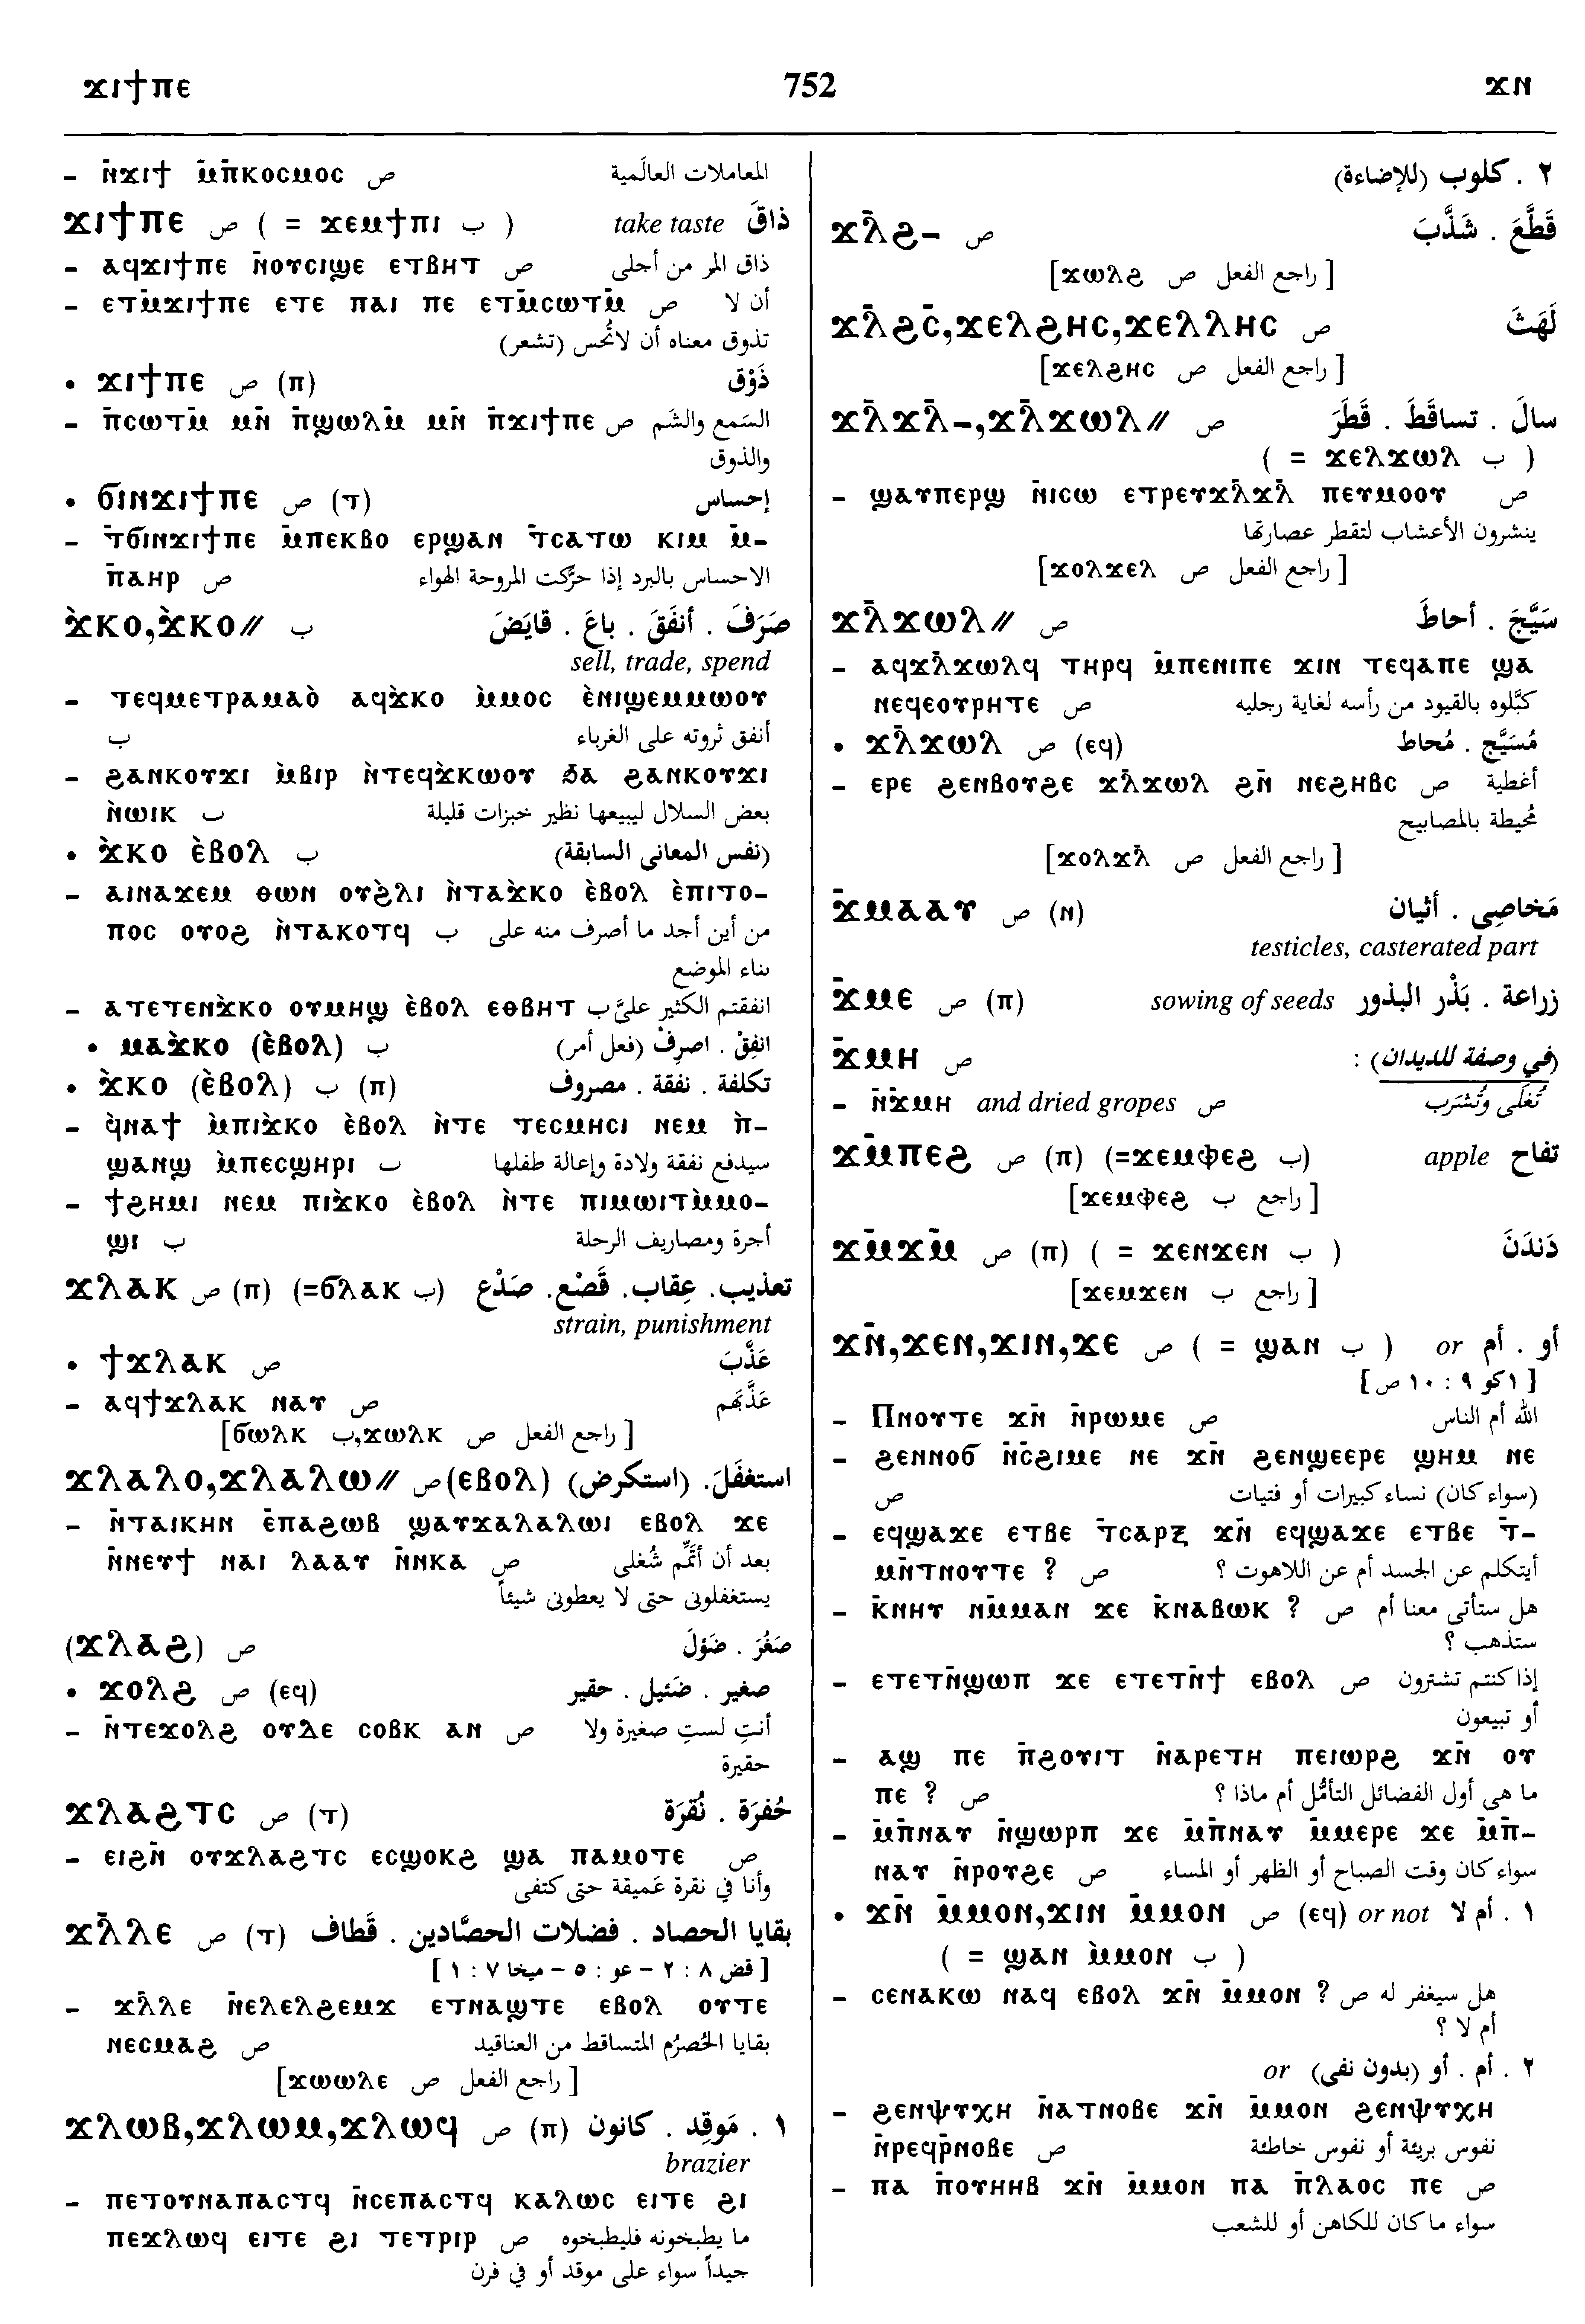 ϫⲓϯⲡⲉ 752 ϫⲛ
– ⲛ̄ϫⲓϯ ⲙ̄ⲡ̄ⲕⲟⲥⲙⲟⲥ ص المعاملات العالَمية
ϫⲓϯⲡⲉ ص ( = ϫⲉⲙϯⲡⲓ ب ) take taste ذاقَ
– ⲁϥϫⲓϯⲡⲉ ⲛ̄ⲟⲩⲥⲓϣⲉ ⲉⲧⲃⲏⲧ ص ذاق المر من أجلى
– ⲉⲧⲙ̄ϫⲓϯⲡⲉ ⲉⲧⲉ ⲡⲁⲓ ⲡⲉ ⲉⲧⲙ̄ⲥⲱⲧⲙ̄ ص أن لا
تذوق معناه أن لاتُحس (تشعر)
• ϫⲓϯⲡⲉ ص (ⲡ) ذَوْق
– ⲡ̄ⲥⲱⲧⲙ̄ ⲙⲛ̄ ⲡ̄ϣⲱⲗⲙ̄ ⲙⲛ̄ ⲡ̄ϫⲓϯⲡⲉ ص السَمع والشَم
والذوق
• ϭⲓⲛϫⲓϯⲡⲉ ص (ⲧ) إحساس
– ⲧ̄ϭⲓⲛϫⲓϯⲡⲉ ⲙ̄ⲡⲉⲕⲃⲟ ⲉⲣϣⲁⲛ ⲧ̄ⲥⲁⲧⲱ ⲕⲓⲙ ⲙ̄-
ⲡ̄ⲁⲏⲣ ص الاحساس بالبرد إذا حرَّكت المروحة الهواء
ϫ̀ⲕⲟ,ϫ̀ⲕⲟ// ب صَرَفَ . أنفَقَ . باعَ . قايَضَ
sell, trade, spend
– ⲧⲉϥⲙⲉⲧⲣⲁⲙⲁⲟ̀ ⲁϥϫ̀ⲕⲟ ⲙ̀ⲙⲟⲥ ⲉ̀ⲛⲓϣⲉⲙⲙⲱⲟⲩ
ب أنفق ثروته على الغرباء
– ϩⲁⲛⲕⲟⲩϫⲓ ⲙ̀ⲃⲓⲣ ⲛ̀ⲧⲉϥϫ̀ⲕⲱⲟⲩ ϧⲁ ϩⲁⲛⲕⲟⲩϫⲓ
ⲛ̀ⲱⲓⲕ ب بعض السلال ليبيعها نظير خبزات قليلة
• ϫ̀ⲕⲟ ⲉ̀ⲃⲟⲗ ب (نفس المعانى السابقة)
– ⲁⲓⲛⲁϫⲉⲙ ⲑⲱⲛ ⲟⲩϩ̀ⲗⲓ ⲛ̀ⲧⲁϫ̀ⲕⲟ ⲉ̀ⲃⲟⲗ ⲉ̀ⲡⲓⲧⲟ-
ⲡⲟⲥ ⲟⲩⲟϩ ⲛ̀ⲧⲁⲕⲟⲧϥ ب من أين أجد ما أصرف منه على
بناء الموضع
– ⲁⲧⲉⲧⲉⲛϫ̀ⲕⲟ ⲟⲩⲙⲏϣ ⲉ̀ⲃⲟⲗ ⲉⲑⲃⲏⲧ ب انفقتم الكثير علىَّ
• ⲙⲁϫ̀ⲕⲟ (ⲉ̀ⲃⲟⲗ) ب انفِقْ . اصرِفْ (فعل أمر)
• ϫ̀ⲕⲟ (ⲉ̀ⲃⲟⲗ) ب (ⲡ) تكلفة . نفقة . مصروف
– ϥ̀ⲛⲁϯ ⲙ̀ⲡⲓϫ̀ⲕⲟ ⲉ̀ⲃⲟⲗ ⲛ̀ⲧⲉ ⲧⲉⲥⲙⲏⲥⲓ ⲛⲉⲙ ⲡ̀-
ϣⲁⲛϣ ⲙ̀ⲡⲉⲥϣⲏⲣⲓ ب سيدفع نفقة ولادة وإعالة طفلها
– ϯϩⲏⲙⲓ ⲛⲉⲙ ⲡⲓϫ̀ⲕⲟ ⲉ̀ⲃⲟⲗ ⲛ̀ⲧⲉ ⲡⲓⲙⲱⲓⲧⲙ̀ⲙⲟ-
ϣⲓ ب أجرة ومصاريف الرحلة
ϫⲗⲁⲕ ص (ⲡ) (=ϭⲗⲁⲕ ب) تعذيب. عِقاب. قَضْع. صَدْع
strain, punishment
• ϯϫⲗⲁⲕ ص عَذَّبَ
– ⲁϥϯϫⲗⲁⲕ ⲛⲁⲩ ص عَذَّبَهم
[ϭⲱⲗⲕ ب,ϫⲱⲗⲕ ص راجع الفعل ]
ϫⲗⲁⲗⲟ,ϫⲗⲁⲗⲱ// ص(ⲉⲃⲟⲗ) استغفَلَ. (استكرض)
– ⲛ̄ⲧⲁⲓⲕⲏⲛ ⲉ̄ⲡⲁϩⲱⲃ ϣⲁⲩϫⲁⲗⲁⲗⲱⲓ ⲉⲃⲟⲗ ϫⲉ
ⲛ̄ⲛⲉⲩϯ ⲛⲁⲓ ⲗⲁⲁⲩ ⲛ̄ⲛⲕⲁ ص بعد أن أُتَمِّم شُغلى
يستغفلونى حتى لا يعطونى شيئاً
(ϫⲗⲁϩ) ص صَغُرَ . ضَؤلَ
• ϫⲟⲗϩ ص (ⲉϥ) صغير . ضَئيل . حقير
– ⲛ̄ⲧⲉϫⲟⲗϩ ⲟⲩⲇⲉ ⲥⲟⲃⲕ ⲁⲛ ص أنتِ لستِ صغيرة ولا
حقيرة
ϫⲗⲁϩⲧⲥ ص (ⲧ) حُفرَة . نُقرَة
– ⲉⲓϩⲛ̄ ⲟⲩϫⲗⲁϩⲧⲥ ⲉⲥϣⲟⲕϩ ϣⲁ ⲡⲁⲙⲟⲧⲉ ص
وأنا في نقرة عَميقة حتى كتفى
ϫⲗ̄ⲗⲉ ص (ⲧ) بقايا الحصاد . فضلات الحصَّادين . قَطاف
[ قض ٨ : ٢ – عو : ٥ – ميخا ٧ : ١ ]
– ϫⲗ̄ⲗⲉ ⲛ̄ⲉⲗⲉⲗϩⲉⲙϫ ⲉⲧⲛⲁϣⲧⲉ ⲉⲃⲟⲗ ⲟⲩⲧⲉ
ⲛⲉⲥⲙⲁϩ ص بقايا الحُصرُم المتساقط من العناقيد
[ϫⲱⲱⲗⲉ ص راجع الفعل ]
ϫⲗⲱⲃ,ϫⲗⲱⲙ,ϫⲗⲱϥ ص (ⲡ) ١ . مَوقِد . كانون
brazier
– ⲡⲉⲧⲟⲩⲛⲁⲡⲁⲥⲧϥ ⲛ̄ⲥⲉⲡⲁⲥⲧϥ ⲕⲁⲗⲱⲥ ⲉⲓⲧⲉ ϩⲓ
ⲡⲉϫⲗⲱϥ ⲉⲓⲧⲉ ϩⲓ ⲧⲉⲧⲣⲓⲣ ص ما يطبخونه فليطبخوه
جيداً سواء على موقد أو في فرن
٢ . كلوب (للإضاءة)
ϫⲗ̄ϩ– ص قَطَّعَ . شَذَّبَ
[ϫⲱⲗϩ ص راجع الفعل ]
ϫⲗ̄ϩⲥ̄,ϫⲉⲗϩⲏⲥ,ϫⲉⲗⲗⲏⲥ ص لَهَثَ
[ϫⲉⲗϩⲏⲥ ص راجع الفعل ]
ϫⲗ̄ϫⲗ̄–,ϫⲗ̄ϫⲱⲗ// ص سالَ . تساقَطَ . قَطَرَ
( = ϫⲉⲗϫⲱⲗ ب )
– ϣⲁⲩⲡⲉⲣϣ ⲛ̄ⲓⲥⲱ ⲉⲧⲣⲉⲩϫⲗ̄ϫⲗ̄ ⲡⲉⲩⲙⲟⲟⲩ ص
ينشرون الأعشاب لتقطر عصارتها
[ϫⲟⲗϫⲉⲗ ص راجع الفعل ]
ϫⲗ̄ϫⲱⲗ// ص سَيَّجَ . أحاطَ
– ⲁϥϫⲗ̄ϫⲱⲗϥ ⲧⲏⲣϥ ⲙ̄ⲡⲉⲛⲓⲡⲉ ϫⲓⲛ ⲧⲉϥⲁⲡⲉ ϣⲁ
ⲛⲉϥⲉⲟⲩⲣⲏⲧⲉ ص كبَّلوه بالقيود من رأسه لغاية رجليه
• ϫⲗ̄ϫⲱⲗ ص (ⲉϥ) مُسَيَّج . مُحاط
– ⲉⲣⲉ ϩⲉⲛⲃⲟⲩϩⲉ ϫⲗ̄ϫⲱⲗ ϩⲛ̄ ⲛⲉϩⲏⲃⲥ ص أغطية
مُحيطة بالمصابيح
[ϫⲟⲗϫⲗ̄ ص راجع الفعل ]
ϫ̄ⲙⲁⲁⲩ ص (ⲛ) مَخاصِى . أثيان
testicles, casterated part
ϫ̄ⲙⲉ ص (ⲡ) sowing of seeds زراعة . بَذْر البذور
ϫ̄ⲙⲏ ص (في وصفة للديدان) :
– ⲛ̄ϫ̄ⲙⲏ and dried gropes ص تُغلَى وتُشرَب
ϫⲙ̄ⲡⲉϩ ص (ⲡ) (=ϫⲉⲙⲫⲉϩ ب) apple تفاح
[ϫⲉⲙⲫⲉϩ ب راجع ]
ϫⲙ̄ϫⲙ̄ ص (ⲡ) ( = ϫⲉⲛϫⲉⲛ ب ) دَندَنَ
[ϫⲉⲙϫⲉⲛ ب راجع ]
ϫⲛ̄,ϫⲉⲛ,ϫⲓⲛ,ϫⲉ ص ( = ϣⲁⲛ ب ) or أو . أم
[ ١كو ٩ : ١٠ ص ]
– Ⲡⲛⲟⲩⲧⲉ ϫⲛ̄ ⲛ̄ⲣⲱⲙⲉ ص الله أم الناس
– ϩⲉⲛⲛⲟϭ ⲛ̄ⲥϩⲓⲙⲉ ⲛⲉ ϫⲛ̄ ϩⲉⲛϣⲉⲉⲣⲉ ϣⲏⲙ ⲛⲉ
ص (سواء كان) نساء كبيرات أو فتيات
– ⲉϥϣⲁϫⲉ ⲉⲧⲃⲉ ⲧ̄ⲥⲁⲣⲝ ϫⲛ̄ ⲉϥϣⲁϫⲉ ⲉⲧⲃⲉ ⲧ̄-
ⲙⲛ̄ⲧⲛⲟⲩⲧⲉ ? ص أيتكلم عن الجسد أم عن اللاهوت ؟
– ⲕ̄ⲛⲏⲩ ⲛⲙ̄ⲙⲁⲛ ϫⲉ ⲕ̄ⲛⲁⲃⲱⲕ ? ص هل ستأتى معنا أم
ستذهب ؟
– ⲉⲧⲉⲧⲛ̄ϣⲱⲡ ϫⲉ ⲉⲧⲉⲧⲛ̄ϯ ⲉⲃⲟⲗ ص إذا كنتم تشترون
أو تبيعون
– ⲁϣ ⲡⲉ ⲡ̄ϩⲟⲩⲓⲧ ⲛ̄ⲁⲣⲉⲧⲏ ⲡⲉⲓⲱⲣϩ ϫⲛ̄ ⲟⲩ
ⲡⲉ ? ص ما هى أول الفضائل التأمُّل أم ماذا ؟
– ⲙ̄ⲡ̄ⲛⲁⲩ ⲛ̄ϣⲱⲣⲡ ϫⲉ ⲙ̄ⲡ̄ⲛⲁⲩ ⲙ̄ⲙⲉⲣⲉ ϫⲉ ⲙ̄ⲡ̄-
ⲛⲁⲩ ⲛ̄ⲣⲟⲩϩⲉ ص سواء كان وقت الصباح أو الظهر أو المساء
• ϫⲛ̄ ⲙ̄ⲙⲟⲛ,ϫⲓⲛ ⲙ̄ⲙⲟⲛ ص (ⲉϥ) or not ١ . أم لا
( = ϣⲁⲛ ⲙ̀ⲙⲟⲛ ب )
– ⲥⲉⲛⲁⲕⲱ ⲛⲁϥ ⲉⲃⲟⲗ ϫⲛ̄ ⲙ̄ⲙⲟⲛ ? ص هل سيغفر له
أم لا ؟
٢ . أم . أو (بدون نفى) or
– ϩⲉⲛⲯⲩⲭⲏ ⲛ̄ⲁⲧⲛⲟⲃⲉ ϫⲛ̄ ⲙ̄ⲙⲟⲛ ϩⲉⲛⲯⲩⲭⲏ
ⲛ̄ⲣⲉϥⲣ̄ⲛⲟⲃⲉ ص نفوس بريئة أو نفوس خاطئة
– ⲡⲁ ⲡ̄ⲟⲩⲏⲏⲃ ϫⲛ̄ ⲙ̄ⲙⲟⲛ ⲡⲁ ⲡ̄ⲗⲁⲟⲥ ⲡⲉ ص
سواء ماكان للكاهن أو للشعب